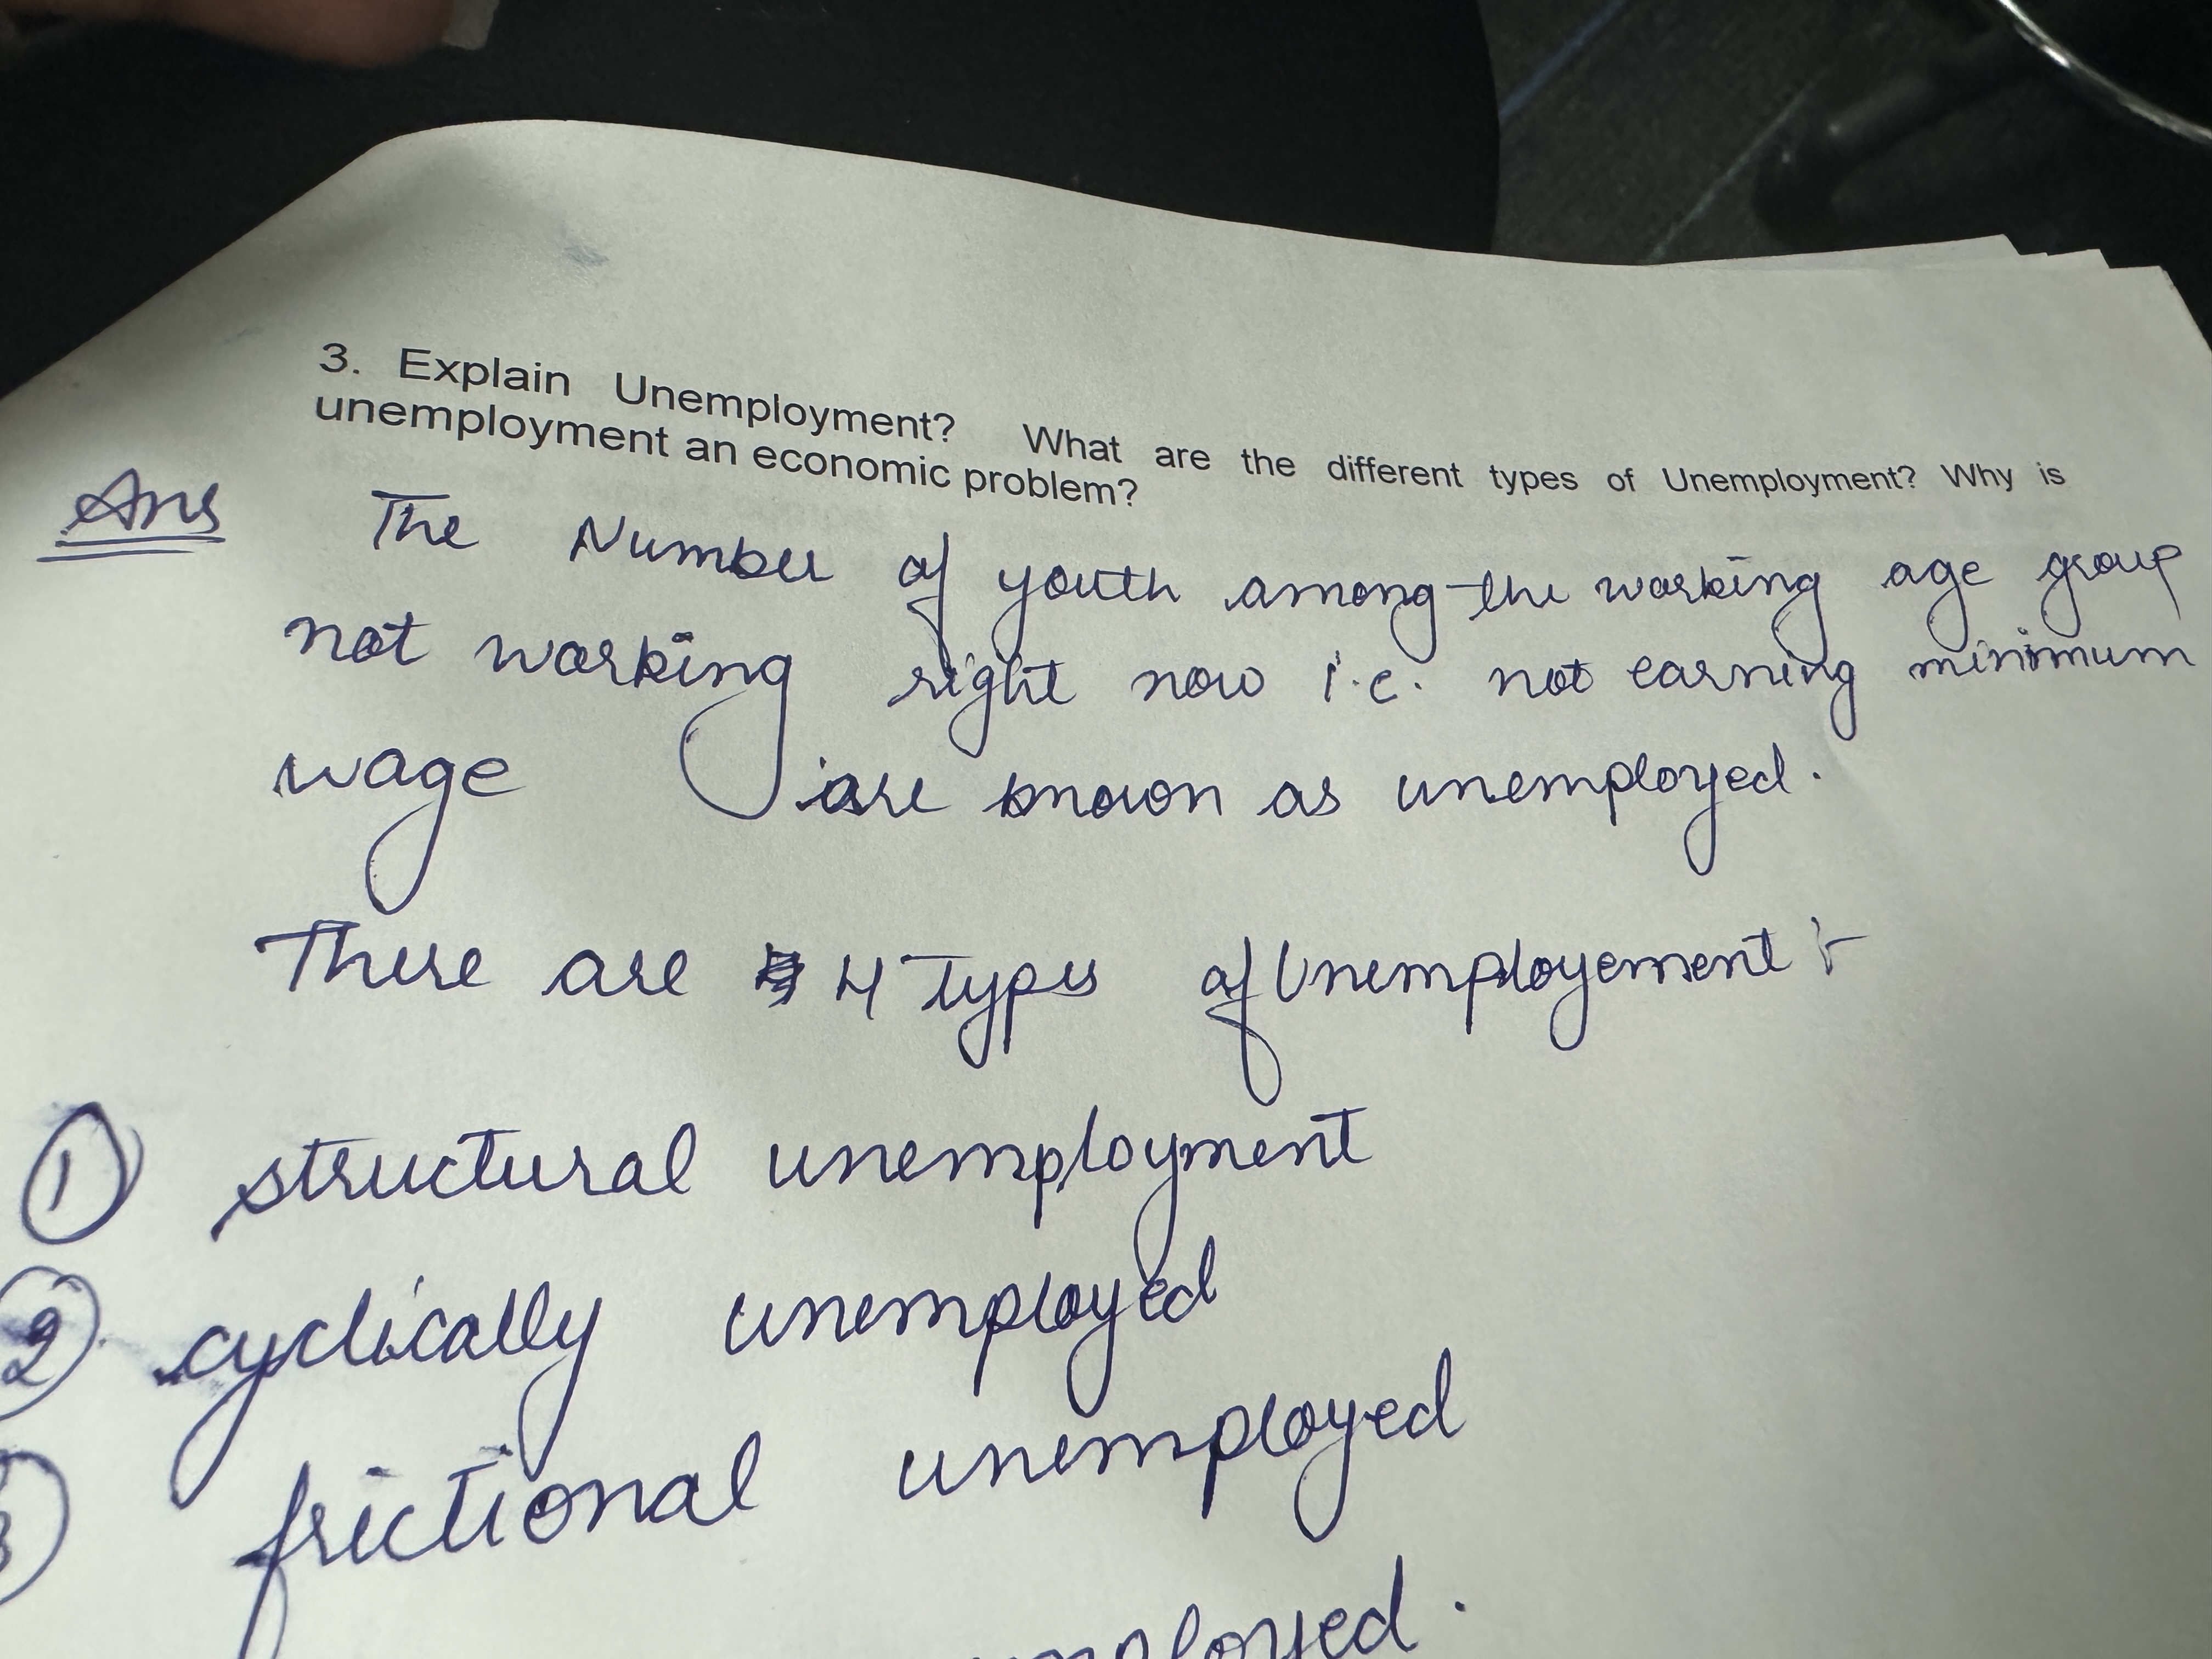 3. Explain Unemployment? What are the different types of Unemployment? Why is
unemployment an economic problem?
Ans The Number of youth among the working age group
not working right now i.e. not earning minimum
wage are known as unemployed.
There are 4 Types of Unemployement :-
① structural unemployment
② cyclically unemployed
③ frictional unemployed